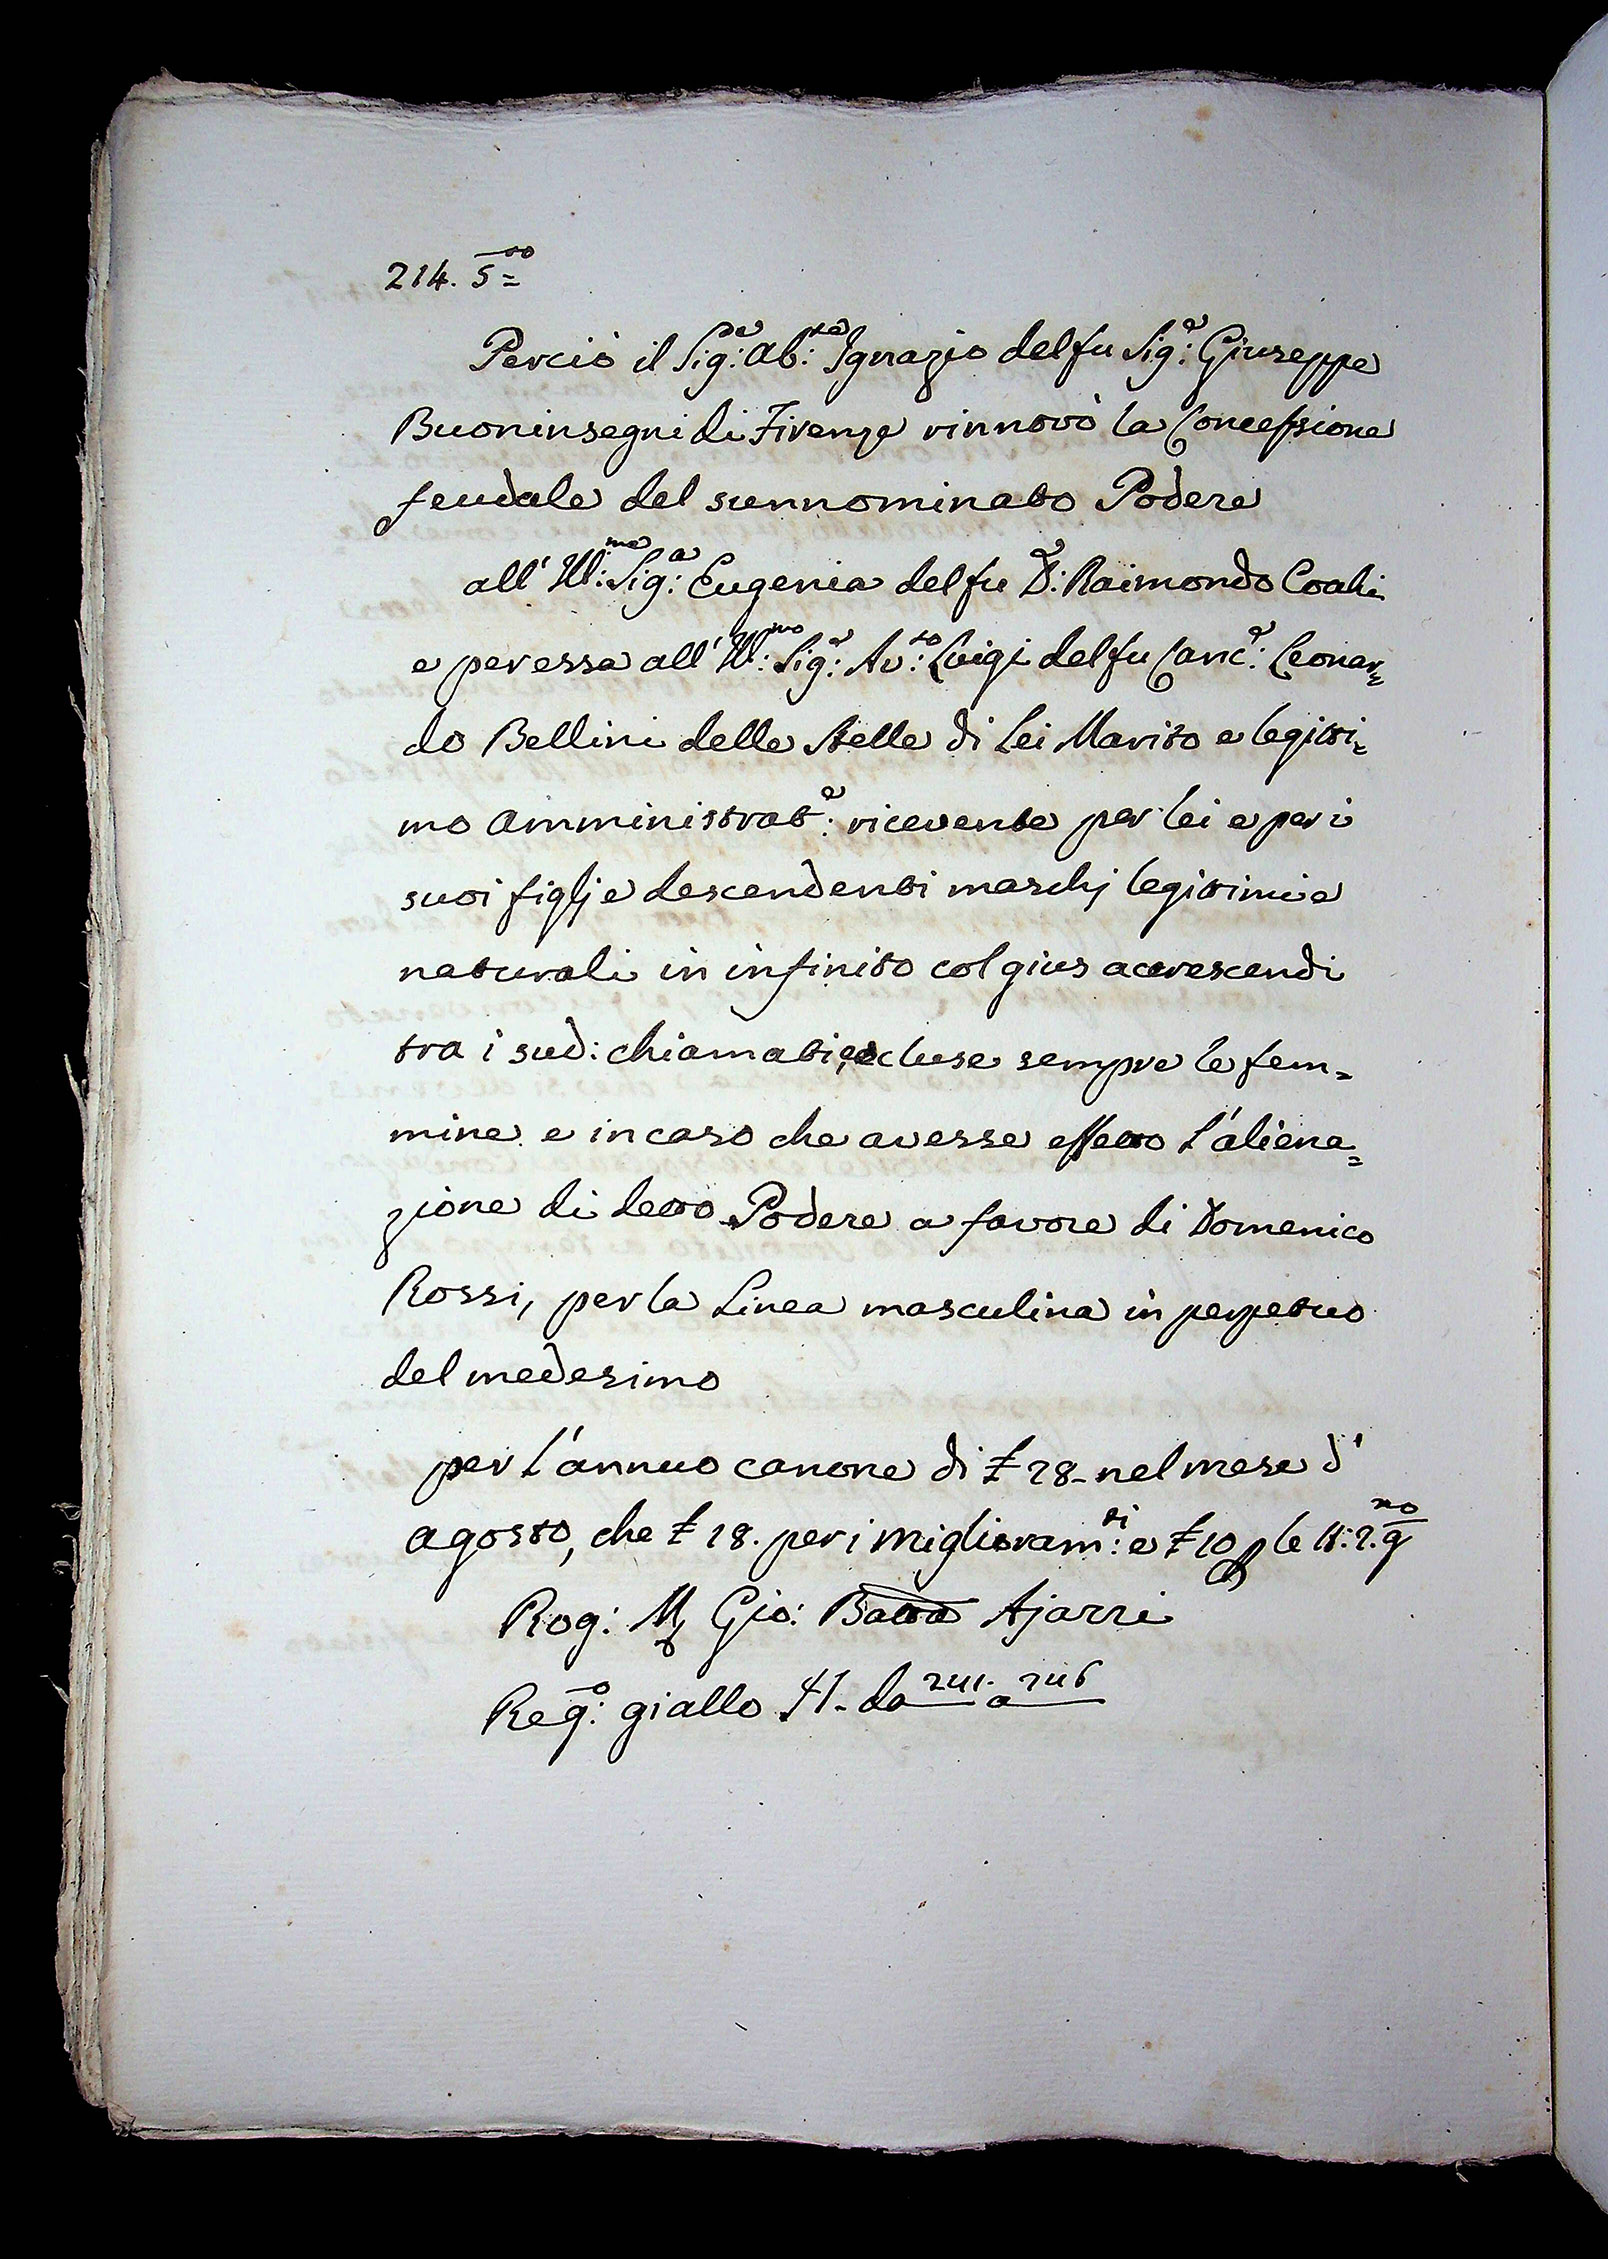 214. 5=to
Perciò il Sig:re Ab:te Ignazio del fu Sig:e Giuseppe
Buoninsegni di Firenze rinnovò la Concessione
feudale del sunnominato Podere
all' Ill:ma Sig:a Eugenia del fu D:e Raimondo Coali
e per essa all' Ill:mo Sig:e Av:to Luigi del fu Canc:e Leonar=
do Bellini delle Stelle di Lei Marito e legitti=
mo amministrat:e ricevente per lei e per i
suoi figlj e descendenti maschj legitimi e
naturali in infinito col gius accrescendi
tra i sud: chiamati, escluse sempre le fem=
mine e in caso che avesse effetto l'aliena=
zione di detto Podere a favore di Domenico
Rossi, per la Linea masculina in perpetuo
del medesimo
per l'annuo canone di £ 28- nel mese d'
agosto, che £ 18. per i miglioram:ti e £ 10 p le
Rog: M Gio: Batta Ajarri
Reg:o giallo da 241. a 246